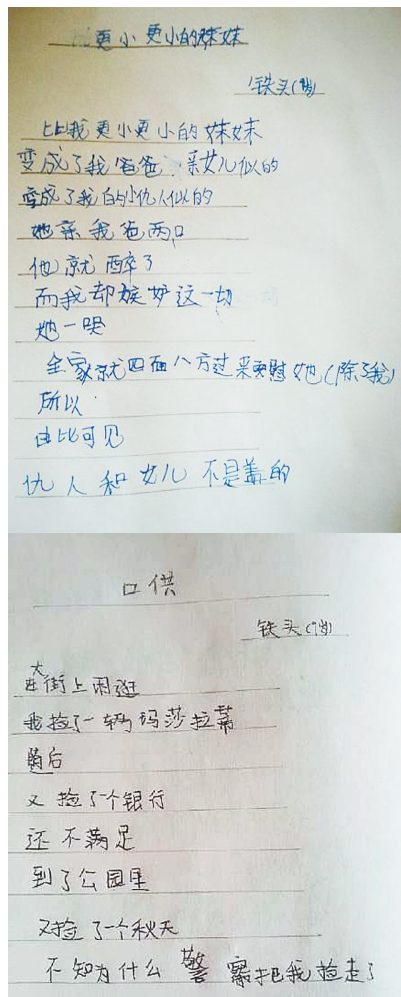 更小更小的妹妹
铁头(9岁)
比我更小更小的妹妹
变成了我爸爸亲女儿似的
变成了我的小仇人似的
她亲我爸两口
他就醉了
而我却嫉妒这一切
她一哭
全家就四面八方过来安慰她(除了我)
所以
由此可见
仇人和女儿不是盖的
口供
铁头(9岁)
在大街上闲逛
我捡了一辆玛莎拉蒂
随后
又捡了个银行
还不满足
到了公园里
又捡了一个秋天
不知为什么警察把我捡走了